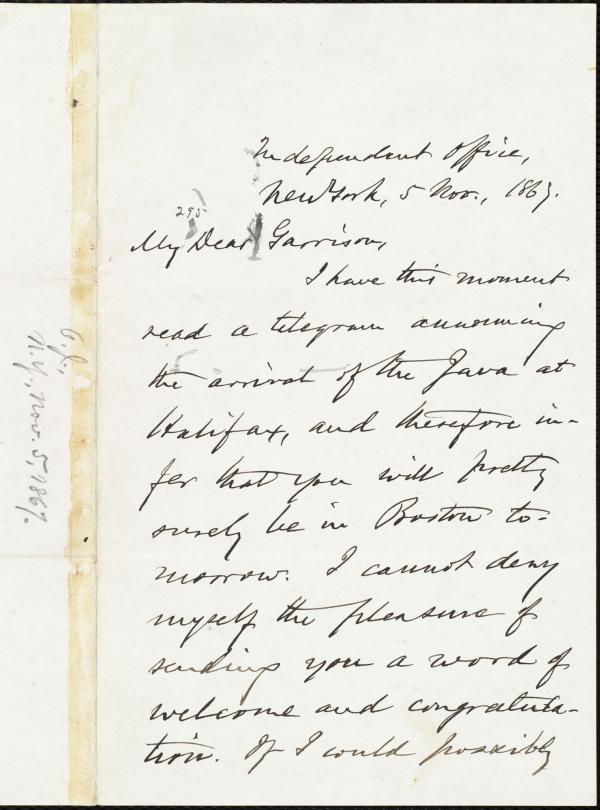 Independent Office,
New York, 5 Nov., 1867.
295
My Dear Garrison,
I have this moment
read a telegram announcing
the arrival of the Java at
Halifax, and therefore in-
fer that you will pretty
surely be in Boston to-
morrow. I cannot deny
myself the pleasure of
sending you a word of
welcome and congratula-
tion. If I could possibly
N.Y., Nov. 5, 1867.